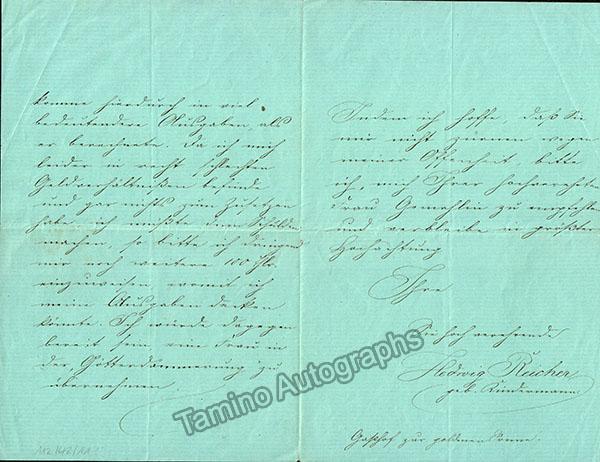 komme hierdurch in viel
bedeutendere Ausgaben, als
er berechnete. Da ich mich
leider in recht schlechten
Geldverhältnißen befinde
und gar nichts zum Zusetzen
habe ich müßte denn Schulden
machen, so bitte ich dringend
mir noch weitere 100
einzuweisen womit ich
meine Ausgaben decken
könnte. Ich würde dagegen
bereit sein eine Frau in
der Götterdämmerung zu
übernehmen
112/612/11
Indem ich hoffe, daß Sie
mir nicht zürnen wegen
meiner Offenheit, bitte
ich, mich Ihrer hochverehrten
Frau Gemahlin zu empfehlen
und verbleibe in größter
Hochachtung
Ihre
Sie hoch verehrende
Hedwig Reicher
geb. Kindermann
Gasthof zur goldenen Sonne.
Tamino Autographs